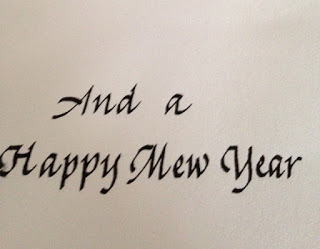 And a
Happy Mew Year